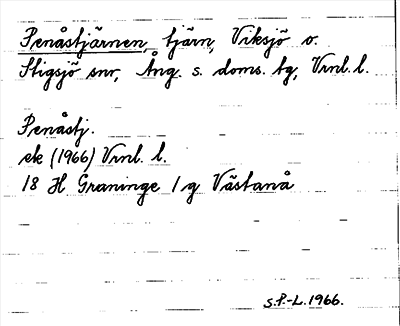 Penåstjärnen, tjärn, Viksjö o.
Stigsjö snr, Ång. s. doms. tg, Vrnl. l.
Penåstj.
ek (1966) Vrnl. l.
18 H Graninge 1g Västanå
S.P.-L. 1966.